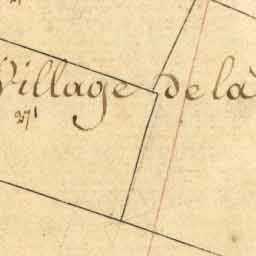 Village de la
271